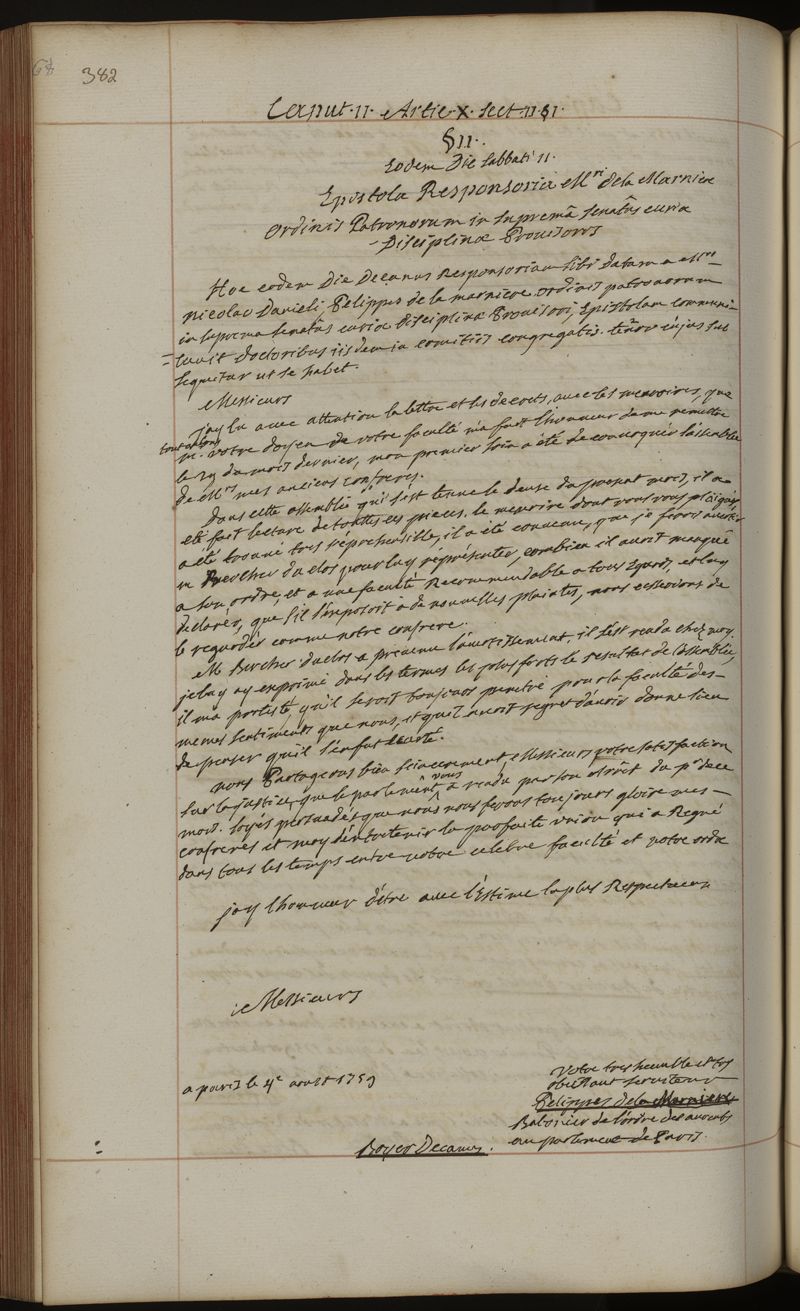 64
382
Caput. II. Artic. X. Sect. II. §1.
§ II.
Eodem Die Sabbati II.
Epistola Responsoria Mri. dela Marniere
Ordinis Patronorum in supremâ senatûs curiâ
Disciplinæ Provisoris
Hoc eodem Die Decanus Responsoriam sibi datam a Mro
nicolao Danieli Pelippes de la marniere ordinis patronorum
in suprema senatûs curiâ disciplinæ Provisori, Epistolam communi-
=cavit Doctoribus iisdem in comitiis congregatis. tenor cujus sic
sequitur ut se habet.
Messieurs
j'ay lu avec attention la lettre et les decrets, avec les memoires, que
m. votre doyen de votre faculté m'a fait l'honneur de me remettre
le du mois dernier, mon premier soin a été de convoquér l'assemblée
de Mrs mes anciens confreres.
Dans cette assemblée qui s'est tenue le deuxe du present mois, il a
eté fait lecture de touttes ces pieces. le memoire dont vous vous plaigniés
a été trouvé tres répréhensible, il a été convenu, que je ferois avertir
m Bercher duclos pour luy réprésenter, combien il avoit manqué
a son ordre, et a une faculté Recommendable a tous Egards, et luy
declarer, que s'il s'exposoit a de nouvelles plaintes, nous cesserions de
le regarder comme notre confrere.
M Bercher duclos a prevenu l'avertissement, il s'est rendu chez moy.
je luy ay exprimé dans les termes les plus forts le resultat de l'assemblée,
il m'a protesté, qu'il seroit toujours penetré pour la faculté des-
memes sentiments que nous, et qu'il auroit regret d'avoir donné lieu
de penser qu'il s'en fut écarté.
nous Partageons bien sincerement Messieurs votre satisfaction
sur la justice, que le parlement vous a rendu par son arrêt du pr. de ce
mois. soyés persuadés que nous nous ferons toujours gloire mes-
confreres et moy d'entretenir la parfaite union qui a Regné
dans tous les temps entre votre celebre faculté et notre ordre
j'ay l'honneur d'être avec l'Estime la plus Respectueuse
Messieurs
a paris le 4e aoust 1759
votre tres humble et tres
obeissant serviteur
Pelippes dela Marniere
Batonier de l'ordre des avocats
au parlement de Paris.
Boyer Decanus.